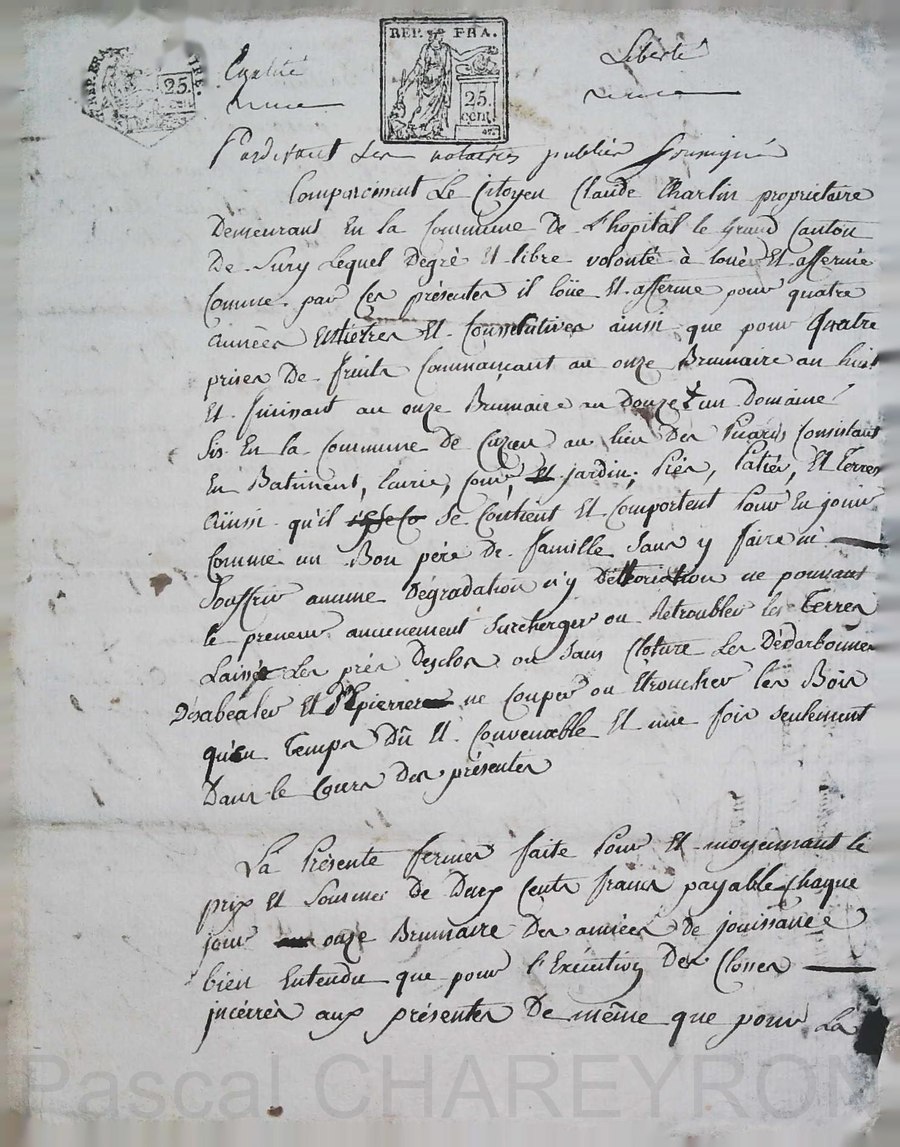 REP. FRA.
25.
cent.
REP. FRA.
25.
cent.
Egalité
Liberté
Pardevant Les notaires publics Soussignés
Comparoissent Le Citoyen Claude Charlin proprietaire
Demeurant En La Commune De L'hopital le Grand Canton
De Sury Lequel Degré Et libre volonté à loué Et afferme
Comme par Ces présentes il loüe Et afferme pour quatre
années Entierres Et Consecutives ainsi que pour quatre
prises De fruits Commançant au onze Brumaire an huit
Et finissant au onze Brumaire an Douze un Domaine
Sis En La Commune De Cuzeu au lieu Des consistant
En Batiment, Curie, Cour, Et jardin, Prés, Patier, Et Terres
Ainsi qu'il Se Contient Et Comportent Pour En jouir
Comme un Bon pére De famille Sans y faire ni
Souffrir aucune Dégradation n'y Déterioration ne pouvant
le preneur aucunement Surcherger ou Retroubler les Terres
Laisser Les prés Desclos ou Sans Cloture Les Dédarbonner
Désabeater Et D'Epierrer ne Couper ou Etroucher les Bois
qu'en Temps Dû Et Convenable Et une fois seulement
Dans le Cours Des présentes
La Présente fermes faite Pour Et moyennant le
prix Et Somme De Deux Cents francs payable Chaque
jour onze Brumaire Des années De jouissance
bien Entendu que pour l'Exécution Des Closes
incérrés aux présentes De même que pour La
Pascal CHAREYRON